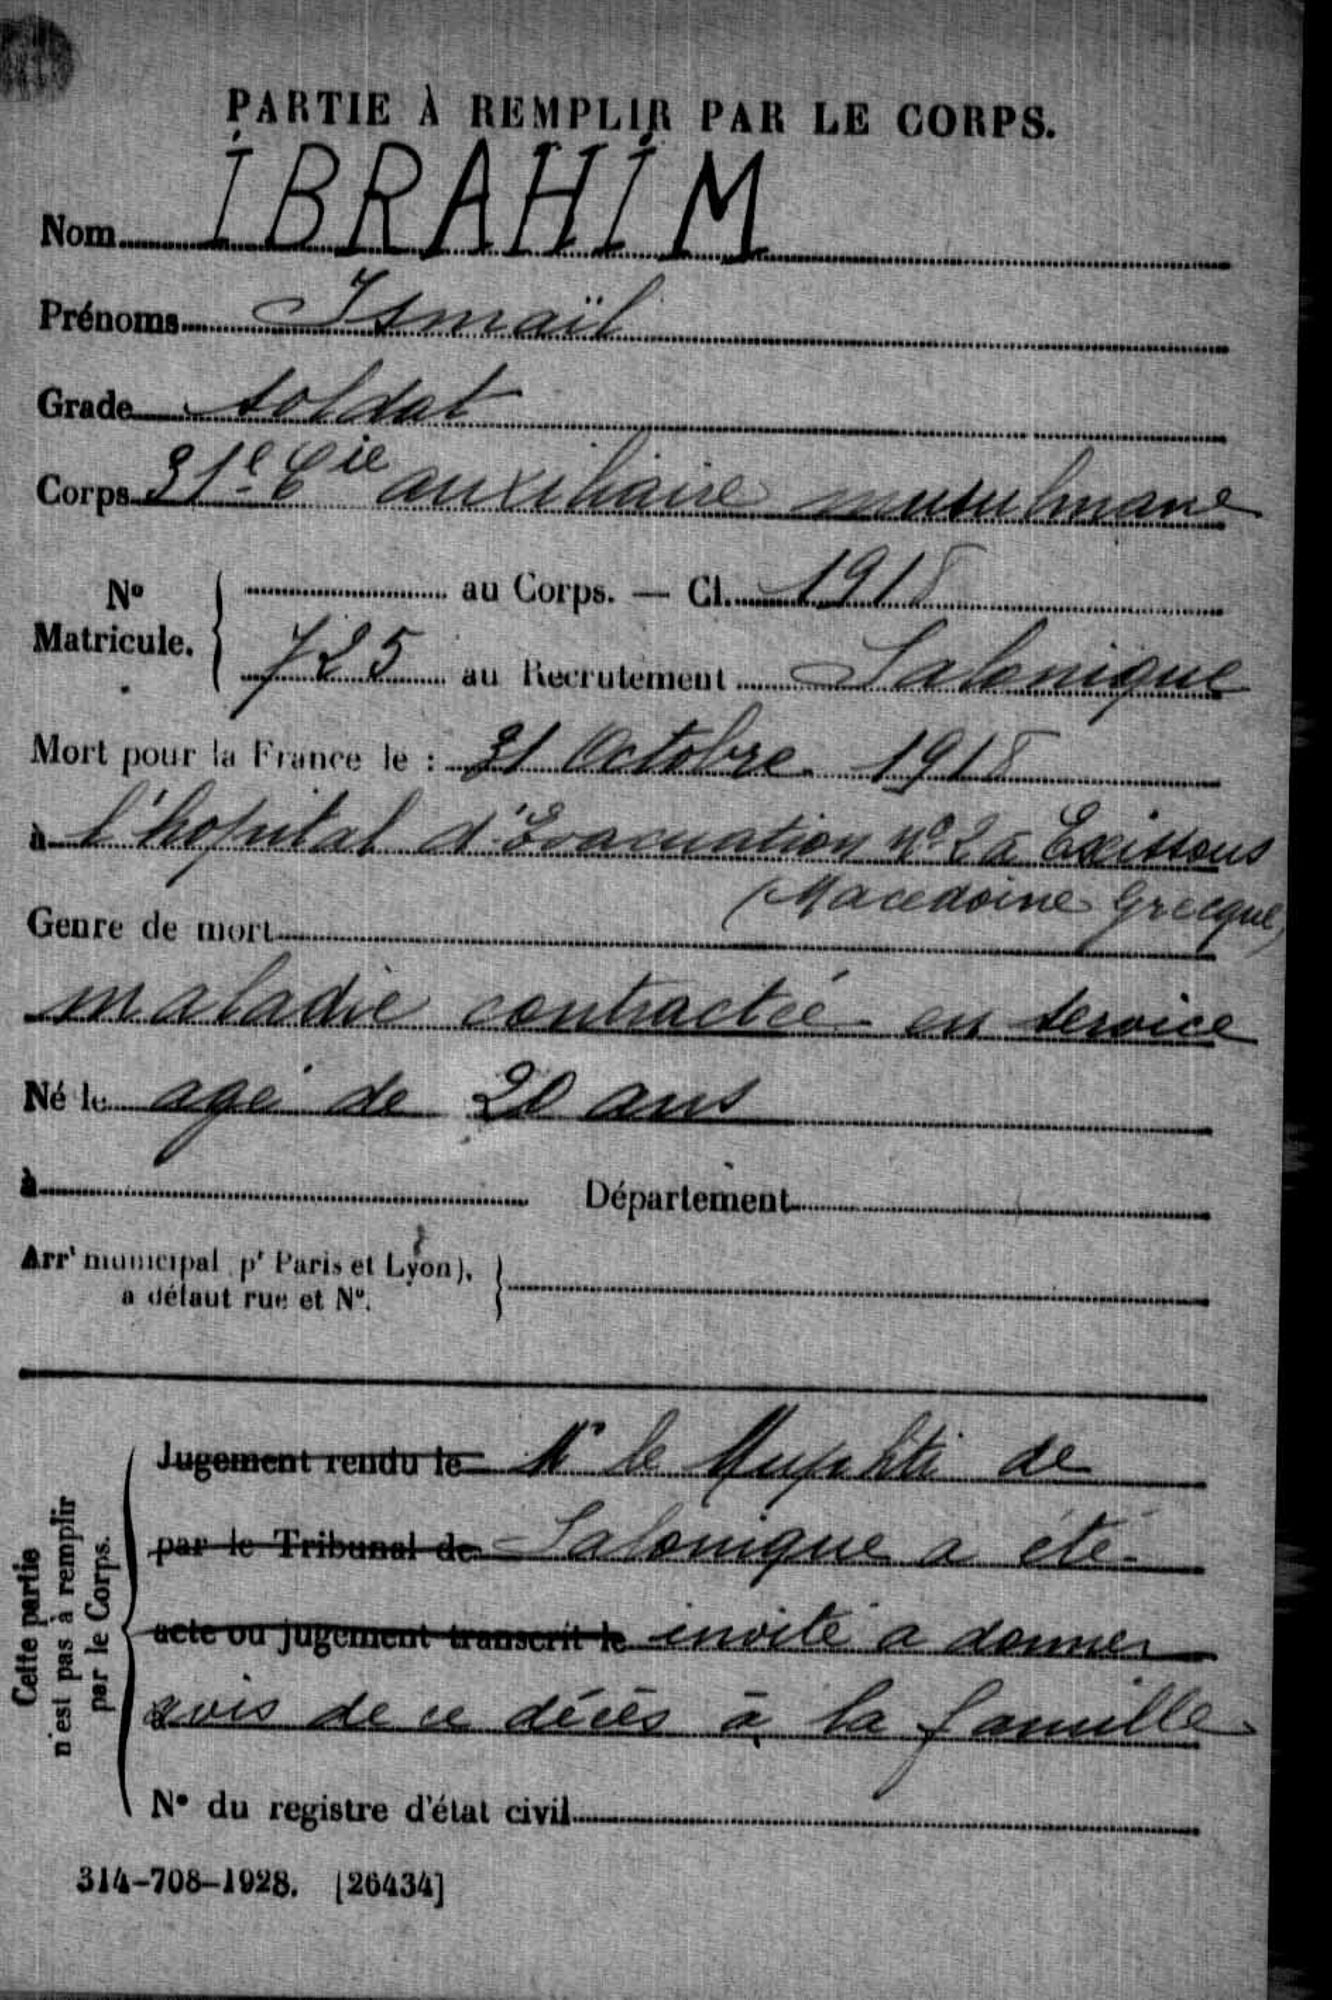 PARTIE À REMPLIR PAR LE CORPS.
Nom IBRAHIM
Prénoms Ismaïl
Grade soldat
Corps 31e Cie auxiliaire musulmane
No Matricule. { au Corps. — Cl. 1918
725 au Recrutement Salonique
Mort pour la France le : 31 Octobre 1918
à l'hopital d'Evacuation no 2 à Exissous
(Macedoine Grecque)
Genre de mort
maladie contractée en service
Né le agé de 20 ans
à Département
Arrt municipal pr Paris et Lyon),
a défaut rue et No. }
Cette partie n'est pas à remplir par le Corps.
Jugement rendu le Mr le Muphti de
par le Tribunal de Salonique a été
acte ou jugement transcrit le invité a donner
avis de ce décès à la famille
No du registre d'état civil
314-708-1928. [26434]